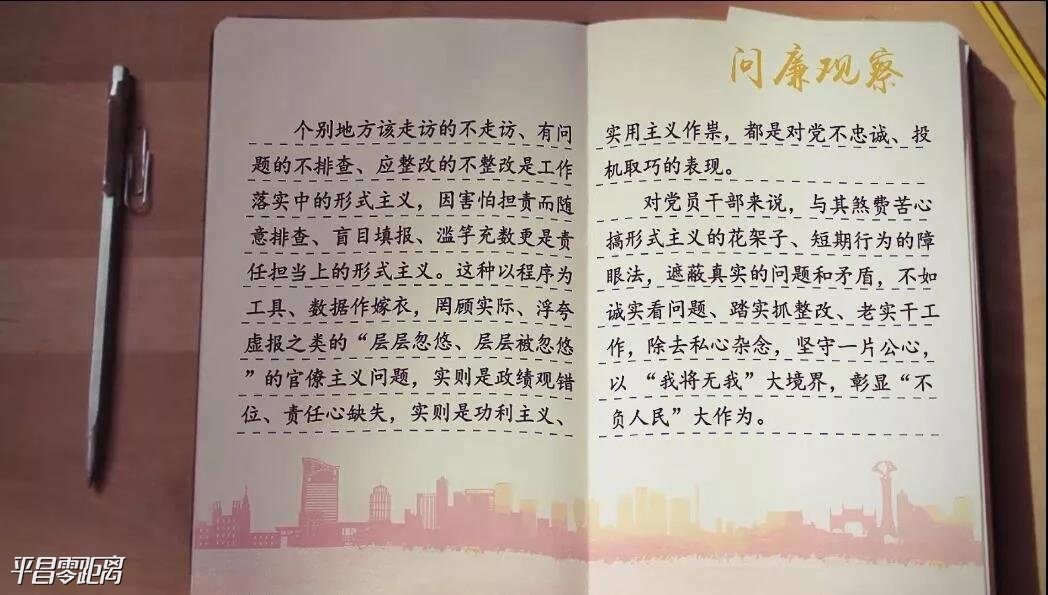 问廉观察
个别地方该走访的不走访、有问
题的不排查、应整改的不整改是工作
落实中的形式主义，因害怕担责而随
意排查、盲目填报、滥竽充数更是责
任担当上的形式主义。这种以程序为
工具、数据作嫁衣，罔顾实际、浮夸
虚报之类的“层层忽悠、层层被忽悠
”的官僚主义问题，实则是政绩观错
位、责任心缺失，实则是功利主义、
实用主义作祟，都是对党不忠诚、投
机取巧的表现。
对党员干部来说，与其煞费苦心
搞形式主义的花架子、短期行为的障
眼法，遮蔽真实的问题和矛盾，不如
诚实看问题、踏实抓整改、老实干工
作，除去私心杂念，坚守一片公心，
以“我将无我”大境界，彰显“不
负人民”大作为。
平昌零距离